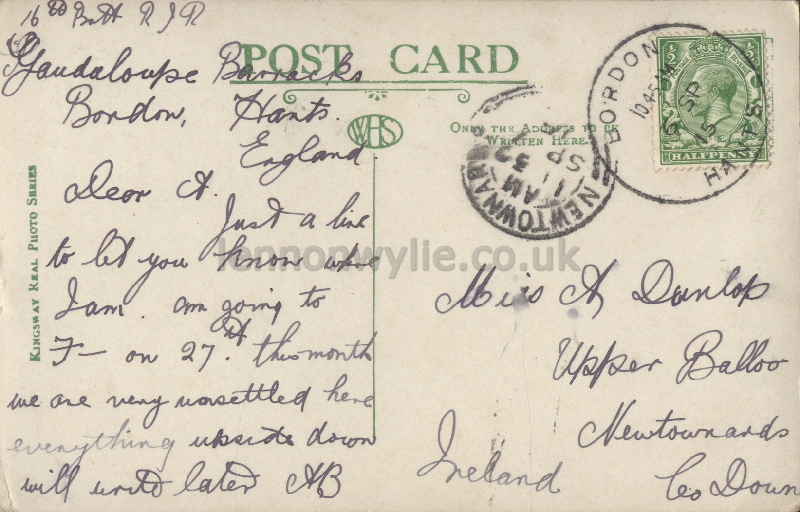 16th Batt R J R
Guadaloupe Barracks
Bordon, Hants.
England
Dear A.
Just a line
to let you know where
I am. am going to
F— on 27th this month
we are very unsettled here
everything upside down
will write later AB
POST CARD
WHS
ONLY THE ADDRESS TO BE
WRITTEN HERE
KINGSWAY REAL PHOTO SERIES
NEWTOWNAR
11 32 AM
SP
BORDON
HANTS
10.45 AM
SP
15
½ ½
HALFPENNY
lennonwylie.co.uk
Miss A Dunlop
Upper Balloo
Newtownards
Co Down
Ireland